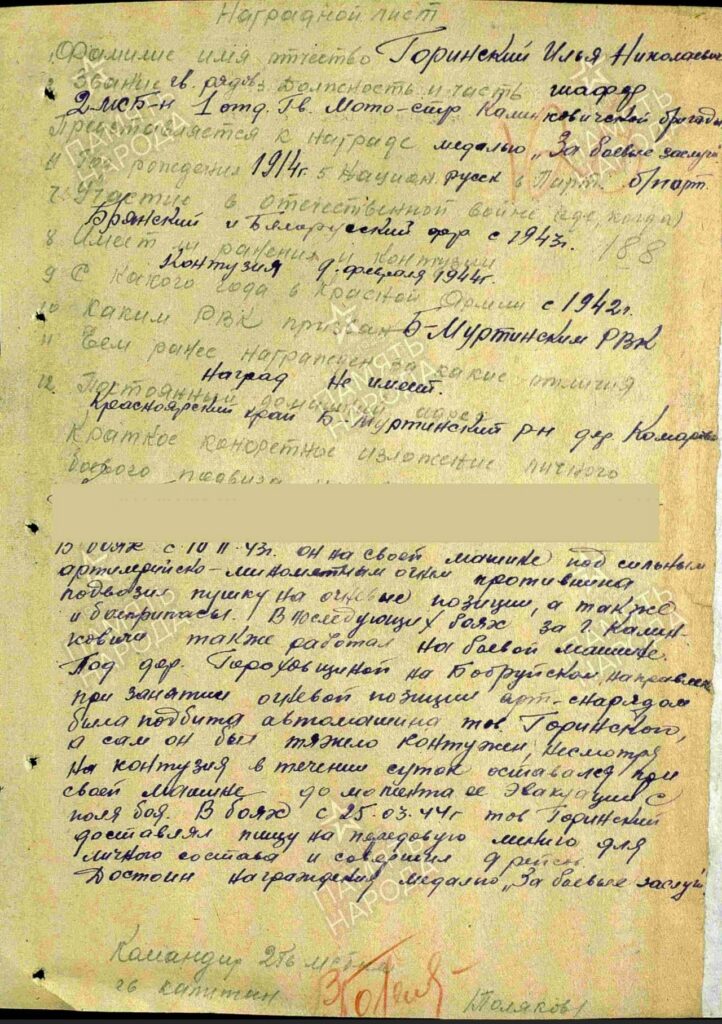 Наградной лист
1. Фамилие имя отчество Горинский Илья Николаевич
2 Звание гв. рядов. 3 Должность и часть шофер
2 МСБ-н 1 отд. Гв. Мото-стр Калинковичской бригады
Представляется к награде медалью „За боевые заслуги
4 Год рождения 1914г. 5 Национ. русск 6 Парт. б/парт.
7. Участие в отечественной войне (где, когда)
Брянский и Белорусский фр с 1943г. 188
8 Имеет ли ранения и контузии
Контузия 9. февраля 1944г.
9 С какого года в Красной Армии с 1942г.
10 Каким РВК призван Б-Муртинским РВК
11 Чем ранее награжден за какие отличия
Наград не имеет.
12. Постоянный домашний адрес
Красноярский край Б-Муртинский р-н дер.
Краткое конкретное изложение личного
боевого подвига
В боях с 10 11 43г. он на своей машине под сильным
артилерийско-минометным огнем противника
подвозил пушку на огневые позиции, а также
и боеприпасы. В последующих боях за г. Калин-
ковичи также работал на боевой машине.
Под дер. Гороховщиной на Бобруйском направлен
при занятии огневой позиции арт-снарядом
была подбита автомашина тов. Горинского,
а сам он был тяжело контужен, несмотря
на контузия в течении суток оставался при
своей машине до момента ее эвакуации с
поля боя. В боях с 25.03.44г тов Горинский
доставлял пищу на передовую линию для
личного состава и совершил 9 рейсов.
Достоин награждения медалью „За боевые заслуги
Командир 2го мсб-на
гв капитан Поляков
ПАМЯТЬ НАРОДА